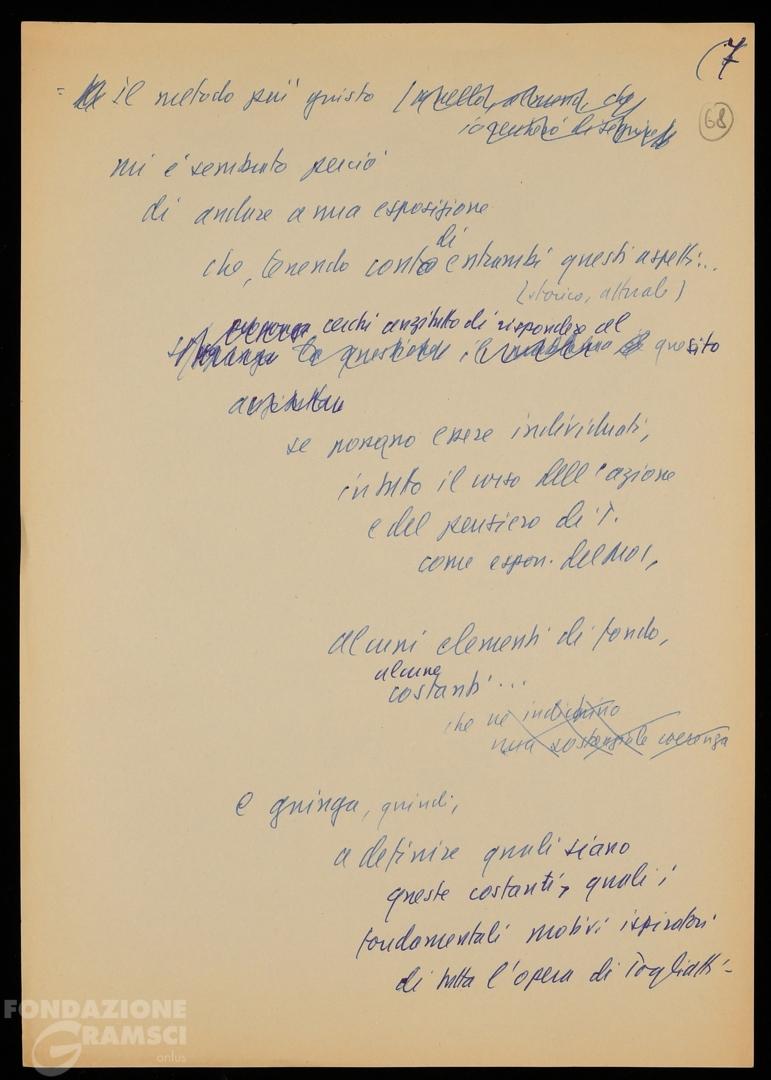 (7
68
= il metodo più giusto (quello, almeno, che
io cercherò di seguire)
mi è sembrato perciò
di andare a una esposizione
che, tenendo conto di entrambi questi aspetti...
(storico, attuale)
cerchi anzitutto di rispondere al
la questione il quesito
anzitutto
se possano essere individuati,
in tutto il corso dell'azione
e del pensiero di T.
come espon. del MOI,
alcuni elementi di fondo,
alcune
costanti...
che ne indichino
una sostanziale coerenza
e giunga, quindi,
a definire quali siano
queste costanti, quali i
fondamentali motivi ispiratori
di tutta l'opera di Togliatti -
FONDAZIONE
GRAMSCI
onlus